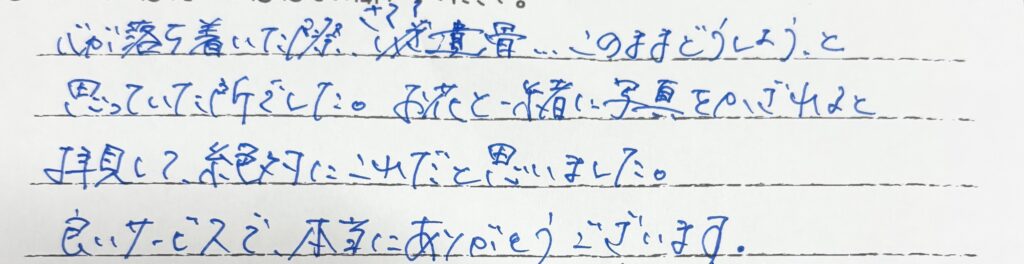 心が落ち着いた際、遺骨…このままどうしよう、と
思っていた所でした。お花と一緒に写真をかざれると
拝見して、絶対にこれだと思いました。
良いサービスで、本当にありがとうございます。